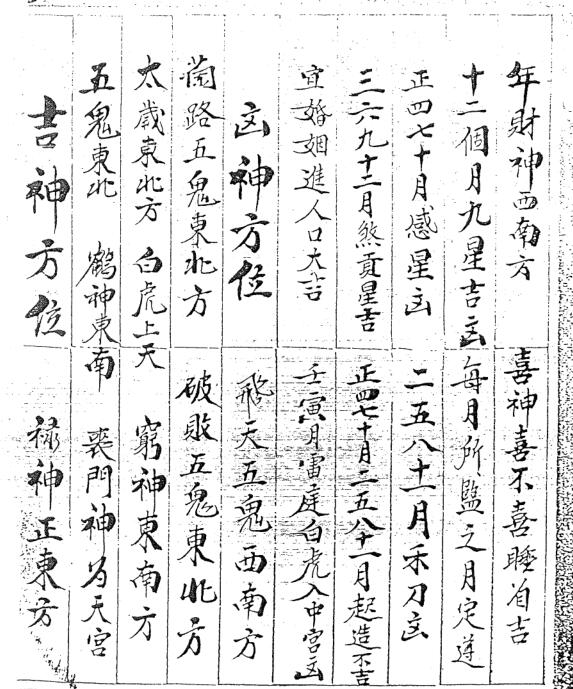 年財神西南方　喜神喜不喜睡首吉
十二個月九星吉凶　每月所監之月定遵
正四七十月惑星凶　二五八十一月禾刀凶
三六九十二月煞貢星吉　正四七十月二五八十一月起造不吉
宜婚姻進人口大吉　壬寅月雷庭白虎入中宮凶
凶神方位　飛天五鬼西南方
路五鬼東北方　破敗五鬼東北方
太歲東北方　白虎上天　窮神東南方
五鬼東北　鶴神東南　喪門神为天宮
吉神方位　祿神正東方